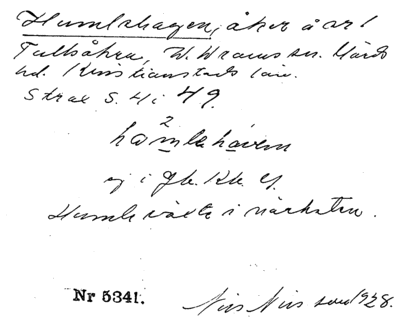 Humlehagen, åker å nr 1
Tullsåkra, W. Wrams sn. Gärds
hd. Kristianstads län.
Strax S. 4 i 49.
2
hamlehávem
ej i Jb. Kb. Y.
Humle växte i närheten.
Nr 5341. Nils Nilsson 1928.